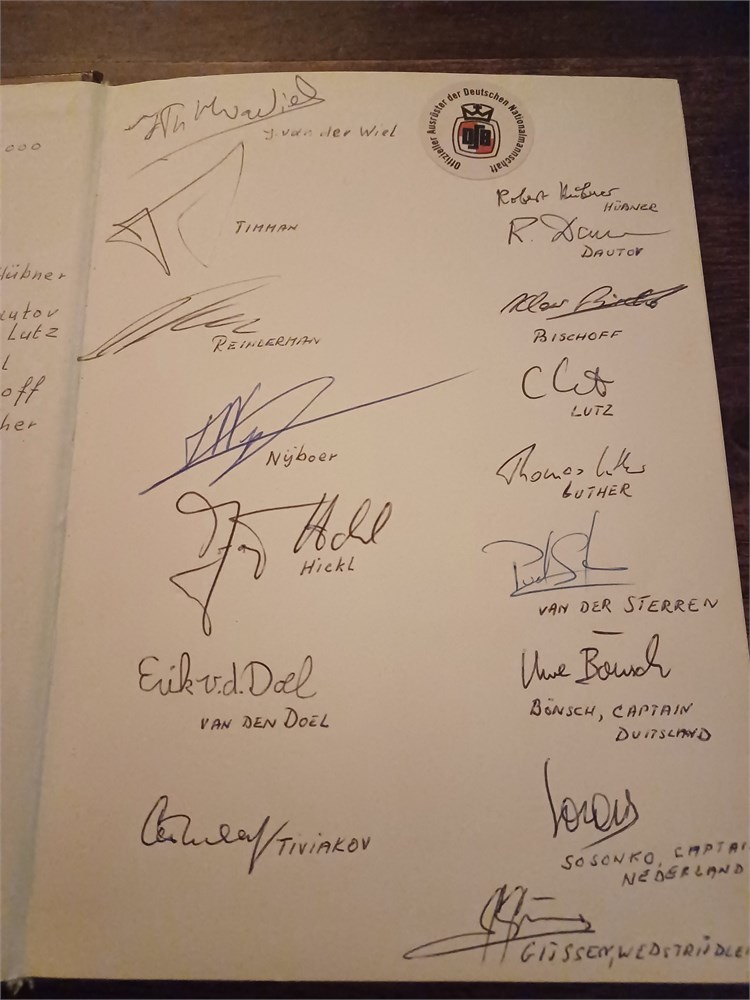 ooo
Hübner
autov
Lutz
L
off
her
J. van der Wiel
TIMMAN
REINDERMAN
Nijboer
Hickl
Erik v.d. Doel
VAN DEN DOEL
TIVIAKOV
Offizieller Ausrüster der Deutschen Nationalmannschaft
Robert Hübner
HÜBNER
R. Dautov
DAUTOV
BISCHOFF
LUTZ
Thomas Luther
LUTHER
VAN DER STERREN
Uwe Bönsch
BÖNSCH, CAPTAIN
DUITSLAND
SOSONKO, CAPTAI
NEDERLAND
GIJSSEN, WEDSTRIJDLEI